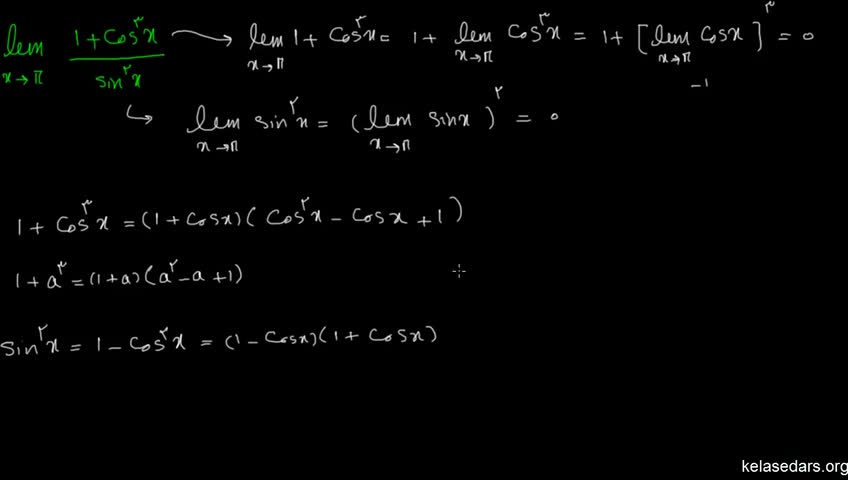 lem x→π (1+cos^۳x)/(sin^۲x) → lem x→π 1+cos^۳x = 1+ lem x→π cos^۳x = 1+[lem x→π cosx]^۳ = ۰
-1
↳ lem x→π sin^۲x = (lem x→π sinx)^۲ = ۰
1+cos^۳x = (1+cosx)(cos^۲x - cosx +1)
1+a^۳ = (1+a)(a^۲-a+1)
sin^۲x = 1-cos^۲x = (1-cosx)(1+cosx)
kelasedars.org